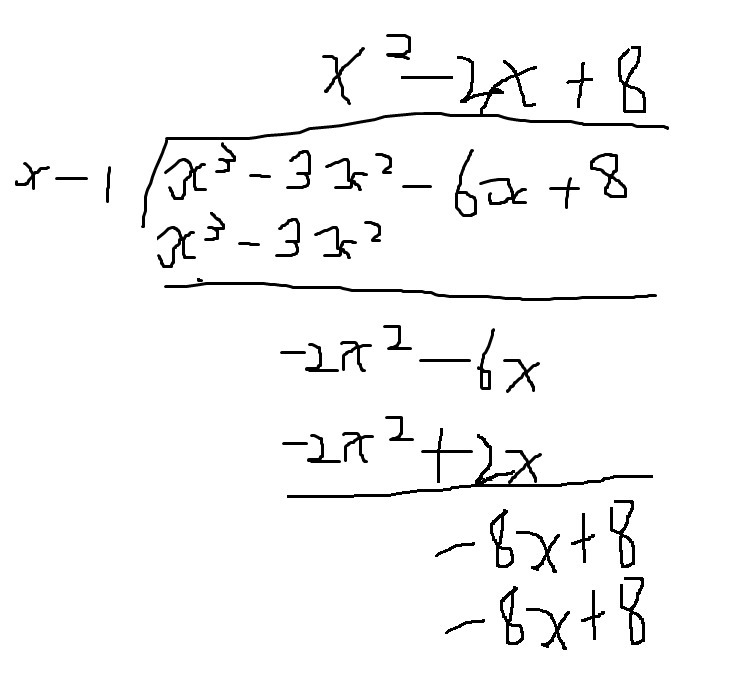 x² - 2x + 8
x - 1 x³ - 3x² - 6x + 8
x³ - 3x²
-2x² - 6x
-2x² + 2x
-8x + 8
-8x + 8